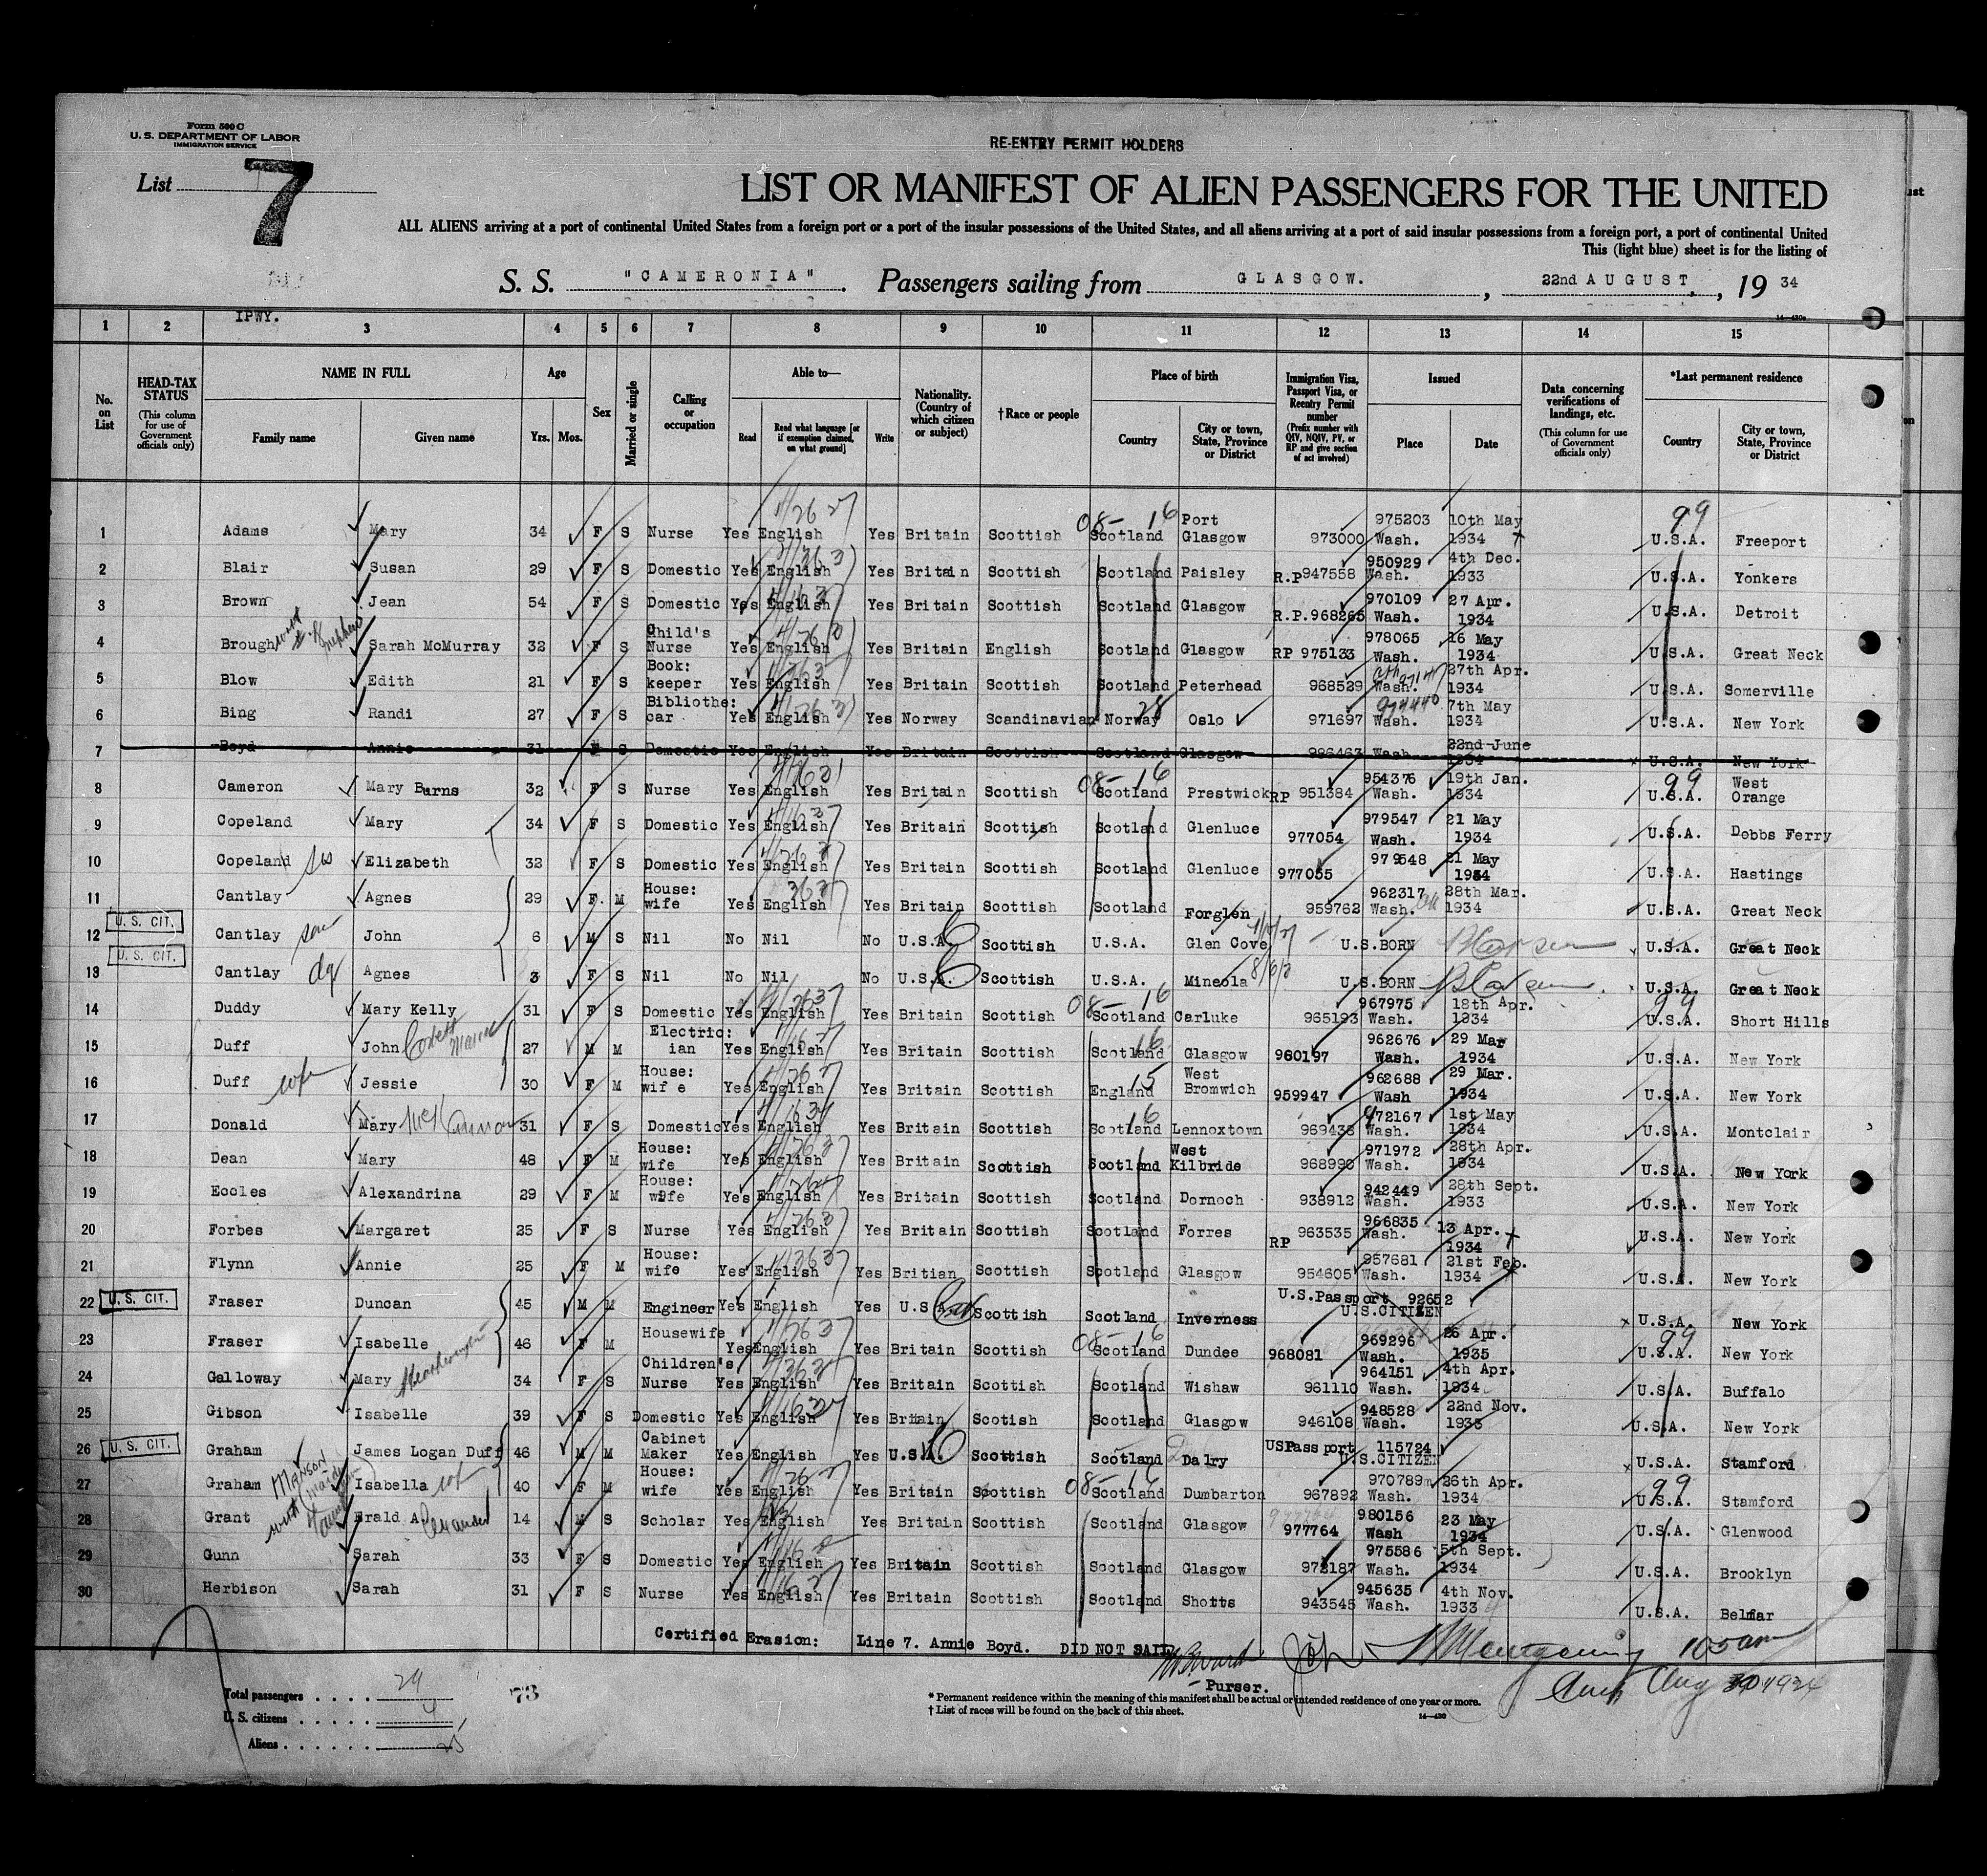 Form 500 C
U. S. DEPARTMENT OF LABOR
IMMIGRATION SERVICE
RE-ENTRY PERMIT HOLDERS
List 7
LIST OR MANIFEST OF ALIEN PASSENGERS FOR THE UNITED
ALL ALIENS arriving at a port of continental United States from a foreign port or a port of the insular possessions of the United States, and all aliens arriving at a port of said insular possessions from a foreign port, a port of continental United
This (light blue) sheet is for the listing of
S. S. "CAMERONIA". Passengers sailing from GLASGOW. , 22nd AUGUST, , 19 34
14—430c
IPWY.
1 2 3 4 5 6 7 8 9 10 11 12 13 14 15
No. on List
HEAD-TAX STATUS (This column for use of Government officials only)
NAME IN FULL Family name Given name
Age Yrs. Mos.
Sex
Married or single
Calling or occupation
Able to— Read Read what language [or if exemption claimed, on what ground] Write
Nationality. (Country of which citizen or subject)
†Race or people
Place of birth Country City or town, State, Province or District
Immigration Visa, Passport Visa, or Reentry Permit number (Prefix number with QIV, NQIV, PV, or RP and give section of act involved)
Issued Place Date
Data concerning verifications of landings, etc. (This column for use of Government officials only)
*Last permanent residence Country City or town, State, Province or District
1 Adams Mary 34 F S Nurse Yes English Yes Britain Scottish 08-16 Scotland Port Glasgow 973000 975203 Wash. 10th May 1934 99 U.S.A. Freeport
2 Blair Susan 29 F S Domestic Yes English Yes Britain Scottish Scotland Paisley R.P 947558 950929 Wash. 4th Dec. 1933 U.S.A. Yonkers
3 Brown Jean 54 F S Domestic Yes English Yes Britain Scottish Scotland Glasgow R.P. 968265 970109 Wash. 27 Apr. 1934 U.S.A. Detroit
4 Brough Sarah McMurray 32 F S Child's Nurse Yes English Yes Britain English Scotland Glasgow RP 975133 978065 Wash. 16 May 1934 U.S.A. Great Neck
5 Blow Edith 21 F S Book: keeper Yes English Yes Britain Scottish Scotland Peterhead 968529 Wash. 27th Apr. 1934 U.S.A. Somerville
6 Bing Randi 27 F S Bibliothe: car Yes English Yes Norway Scandinavian Norway 28 Oslo 971697 974440 Wash. 7th May 1934 U.S.A. New York
7 Boyd Annie 31 F S Domestic Yes English Yes Britain Scottish Scotland Glasgow 986463 Wash 22nd June 1934 U.S.A. New York
8 Cameron Mary Burns 32 F S Nurse Yes English Yes Britain Scottish 08-16 Scotland Prestwick RP 951384 954376 Wash. 19th Jan. 1934 99 U.S.A. West Orange
9 Copeland Mary 34 F S Domestic Yes English Yes Britain Scottish Scotland Glenluce 977054 979547 Wash. 21 May 1934 U.S.A. Dobbs Ferry
10 Copeland sis Elizabeth 32 F S Domestic Yes English Yes Britain Scottish Scotland Glenluce 977055 979548 21 May 1934 U.S.A. Hastings
11 Cantlay Agnes 29 F. M House: wife Yes English Yes Britain Scottish Scotland Forglen 959762 962317 Wash. 28th Mar. 1934 U.S.A. Great Neck
U. S. CIT.
12 Cantlay son John 6 M S Nil No Nil No U.S.A. Scottish U.S.A. Glen Cove U.S.BORN U.S.A. Great Neck
U. S. CIT.
13 Cantlay Agnes 3 F S Nil No Nil No U.S.A. Scottish U.S.A. Mineola U.S.BORN U.S.A. Great Neck
14 Duddy Mary Kelly 31 F S Domestic Yes English Yes Britain Scottish 08-16 Scotland Carluke 965193 967975 Wash. 18th Apr. 1934 99 U.S.A. Short Hills
15 Duff John 27 M M Electric: ian Yes English Yes Britain Scottish 16 Scotland Glasgow 960197 962676 Wash. 29 Mar 1934 U.S.A. New York
16 Duff wife Jessie 30 F M House: wife Yes English Yes Britain Scottish 15 England West Bromwich 959947 962688 Wash 29 Mar. 1934 U.S.A. New York
17 Donald Mary McKinnon 31 F S Domestic Yes English Yes Britain Scottish 16 Scotland Lennoxtown 969438 972167 Wash. 1st May 1934 U.S.A. Montclair
18 Dean Mary 48 F M House: wife Yes English Yes Britain Scottish Scotland West Kilbride 968990 971972 Wash. 28th Apr. 1934 U.S.A. New York
19 Eccles Alexandrina 29 F M House: wife Yes English Yes Britain Scottish Scotland Dornoch 938912 942449 Wash. 28th Sept. 1933 U.S.A. New York
20 Forbes Margaret 25 F S Nurse Yes English Yes Britain Scottish Scotland Forres RP 963535 966835 Wash. 13 Apr. 1934 U.S.A. New York
21 Flynn Annie 25 F M House: wife Yes English Yes Britian Scottish Scotland Glasgow 954605 957681 Wash. 21st Feb. 1934 U.S.A. New York
22 U. S. CIT. Fraser Duncan 45 M M Engineer Yes English Yes U.S.A. Scottish Scotland Inverness U.S.Passport 92652 U.S.CITIZEN U.S.A. New York
23 Fraser Isabelle 46 F M Housewife Yes English Yes Britain Scottish 08-16 Scotland Dundee 968081 969296 Wash. 26 Apr. 1935 99 U.S.A. New York
24 Galloway Mary 34 F S Children's Nurse Yes English Yes Britain Scottish Scotland Wishaw 961110 964151 Wash. 4th Apr. 1934 U.S.A. Buffalo
25 Gibson Isabelle 39 F S Domestic Yes English Yes Britain Scotish Scotland Glasgow 946108 948528 Wash. 22nd Nov. 1933 U.S.A. New York
26 U. S. CIT. Graham James Logan Duff 46 M M Cabinet Maker Yes English Yes U.S.A. Scottish Scotland Dalry USPassport 115724 U.S.CITIZEN U.S.A. Stamford
27 Graham MANSON Isabella wife 40 F M House: wife Yes English Yes Britain Scottish 08-16 Scotland Dumbarton 967892 970789 Wash. 26th Apr. 1934 99 U.S.A. Stamford
28 Grant Erald Alexander 14 M S Scholar Yes English Yes Britain Scottish Scotland Glasgow 977764 980156 Wash 23 May 1934 U.S.A. Glenwood
29 Gunn Sarah 33 F S Domestic Yes English Yes Britain Scottish Scotland Glasgow 972187 975586 Wash. 5th Sept. 1934 U.S.A. Brooklyn
30 Herbison Sarah 31 F S Nurse Yes English Yes Britain Scottish Scotland Shotts 943545 945635 Wash. 4th Nov. 1933 U.S.A. Belmar
Certified Erasion: Line 7. Annie Boyd. DID NOT SAIL
Purser.
Total passengers . . . . 29
U. S. citizens . . . . . 4
Aliens . . . . . . 25
73
* Permanent residence within the meaning of this manifest shall be actual or intended residence of one year or more.
† List of races will be found on the back of this sheet.
14—430